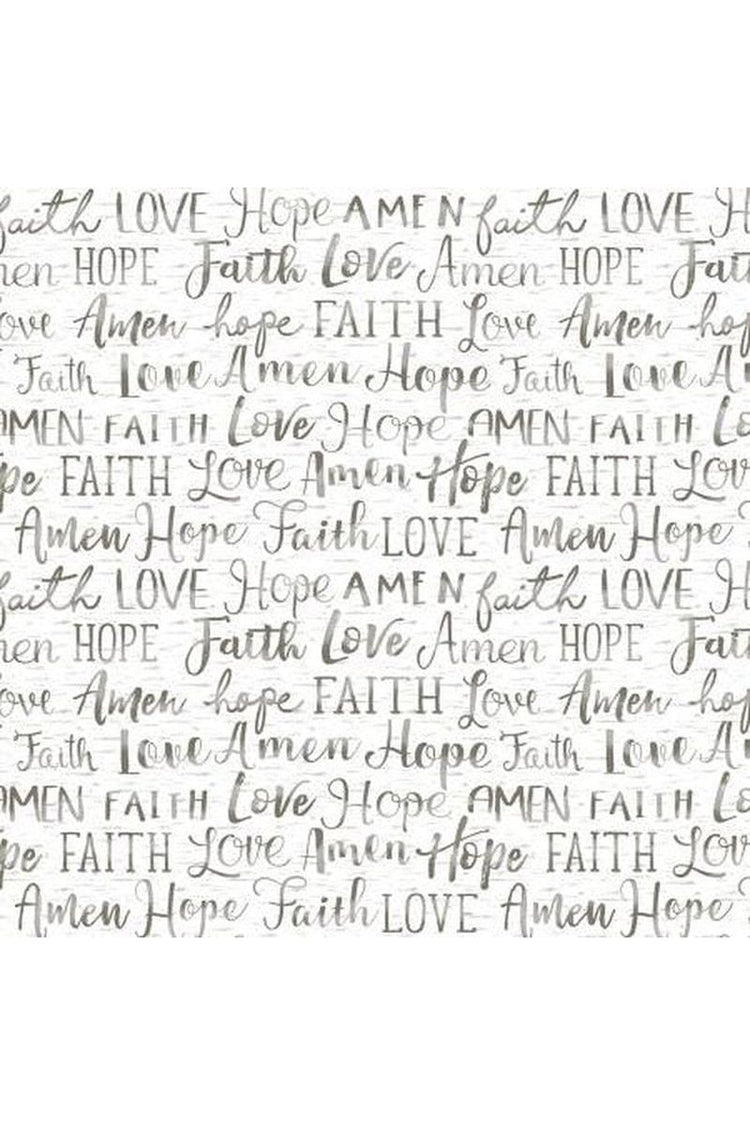 faith LOVE Hope AMEN faith LOVE H
men HOPE Faith Love Amen HOPE Fait
ove Amen hope FAITH Love Amen hop
Faith Love Amen Hope Faith Love A
AMEN FAITH Love Hope AMEN FAITH Lo
pe FAITH Love Amen Hope FAITH Lov
Amen Hope Faith LOVE Amen Hope
faith LOVE Hope AMEN faith LOVE H
men HOPE Faith Love Amen HOPE Fait
ove Amen hope FAITH Love Amen hop
Faith Love Amen Hope Faith Love A
AMEN FAITH Love Hope AMEN FAITH Lo
pe FAITH Love Amen Hope FAITH Lov
Amen Hope Faith LOVE Amen Hope